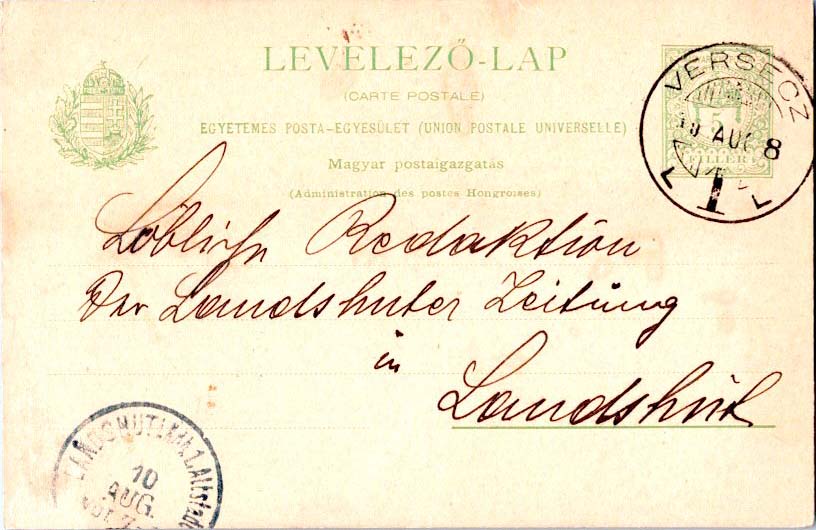 LEVELEZŐ-LAP
(CARTE POSTALE)
EGYETEMES POSTA-EGYESÜLET (UNION POSTALE UNIVERSELLE)
Magyar postaigazgatás
(Administration des postes Hongroises)
5
FILLÉR
VERSECZ
AUG 8
Löbliche Redaktion
Der Landshuter Zeitung
in
Landshut
LANDSHUT Altstadt
10
AUG.